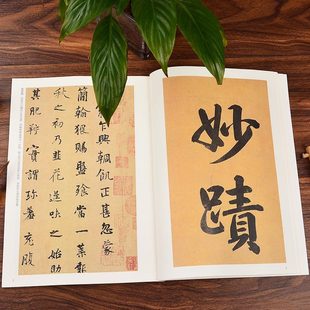 妙蹟
乍興輖飢正甚忽蒙
簡翰猥賜盤飧當一葉報
秋之初乃韭花逞味之始助
其肥羜實謂珍羞充腹